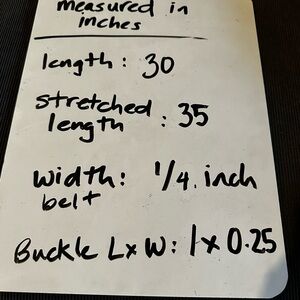 measured in
inches
length: 30
stretched
length : 35
width: 1/4 inch
belt
Buckle L x W: 1 x 0.25